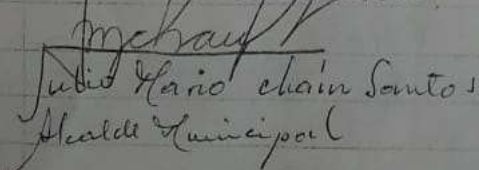 Julio Mario chaín Santos
Alcalde Municipal